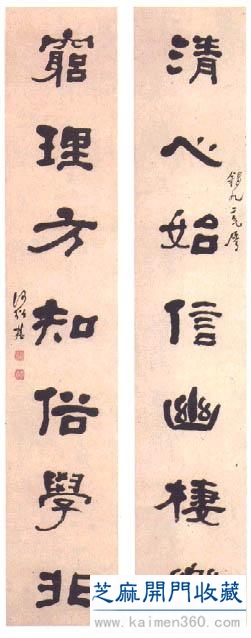 清心始信幽棲
錫九二兄屬
窮理方知俗學非
何紹基
芝麻開門收藏
www.kaimen360.com